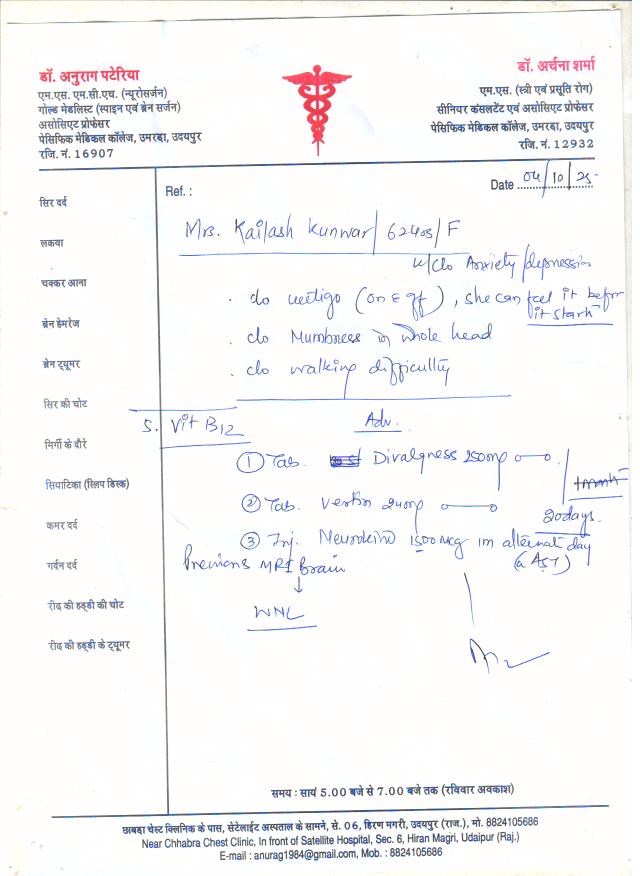 डॉ. अनुराग पटेरिया
एम.एस. एम.सी.एच. (न्यूरोसर्जन)
गोल्ड मेडलिस्ट (स्पाइन एवं ब्रेन सर्जन)
असोसिएट प्रोफेसर
पेसिफिक मेडिकल कॉलेज, उमरडा, उदयपुर
रजि. नं. 16907
डॉ. अर्चना शर्मा
एम.एस. (स्त्री एवं प्रसूति रोग)
सीनियर कंसलटेंट एवं असोसिएट प्रोफेसर
पेसिफिक मेडिकल कॉलेज, उमरडा, उदयपुर
रजि. नं. 12932
Ref. :
Date 04/10/25
सिर दर्द
लकवा
चक्कर आना
ब्रेन हेमरेज
ब्रेन ट्यूमर
सिर की चोट
मिर्गी के दौरे
सियाटिका (स्लिप डिस्क)
कमर दर्द
गर्दन दर्द
रीद की हड्डी की चोट
रीद की हड्डी के ट्यूमर
Mrs. Kailash Kunwar/ 62yrs/F
k/c/o Anxiety/depression
. c/o vertigo (on & off), she can feel it before
it starts
. c/o Numbness in whole head
. c/o walking difficulty
S. Vit B12
Adv.
① Tab. Divalgress 250mg
② Tab. Vertin 24mg
20days
③ Inj. Neurokind 1500mcg im alternat day
(a AST)
Previous MRI Brain
WNL
समय : सायं 5.00 बजे से 7.00 बजे तक (रविवार अवकाश)
छाबड़ा चेस्ट क्लिनिक के पास, सेटेलाईट अस्पताल के सामने, से. 06, हिरण मगरी, उदयपुर (राज.), मो. 8824105686
Near Chhabra Chest Clinic, In front of Satellite Hospital, Sec. 6, Hiran Magri, Udaipur (Raj.)
E-mail : anurag1984@gmail.com, Mob. : 8824105686